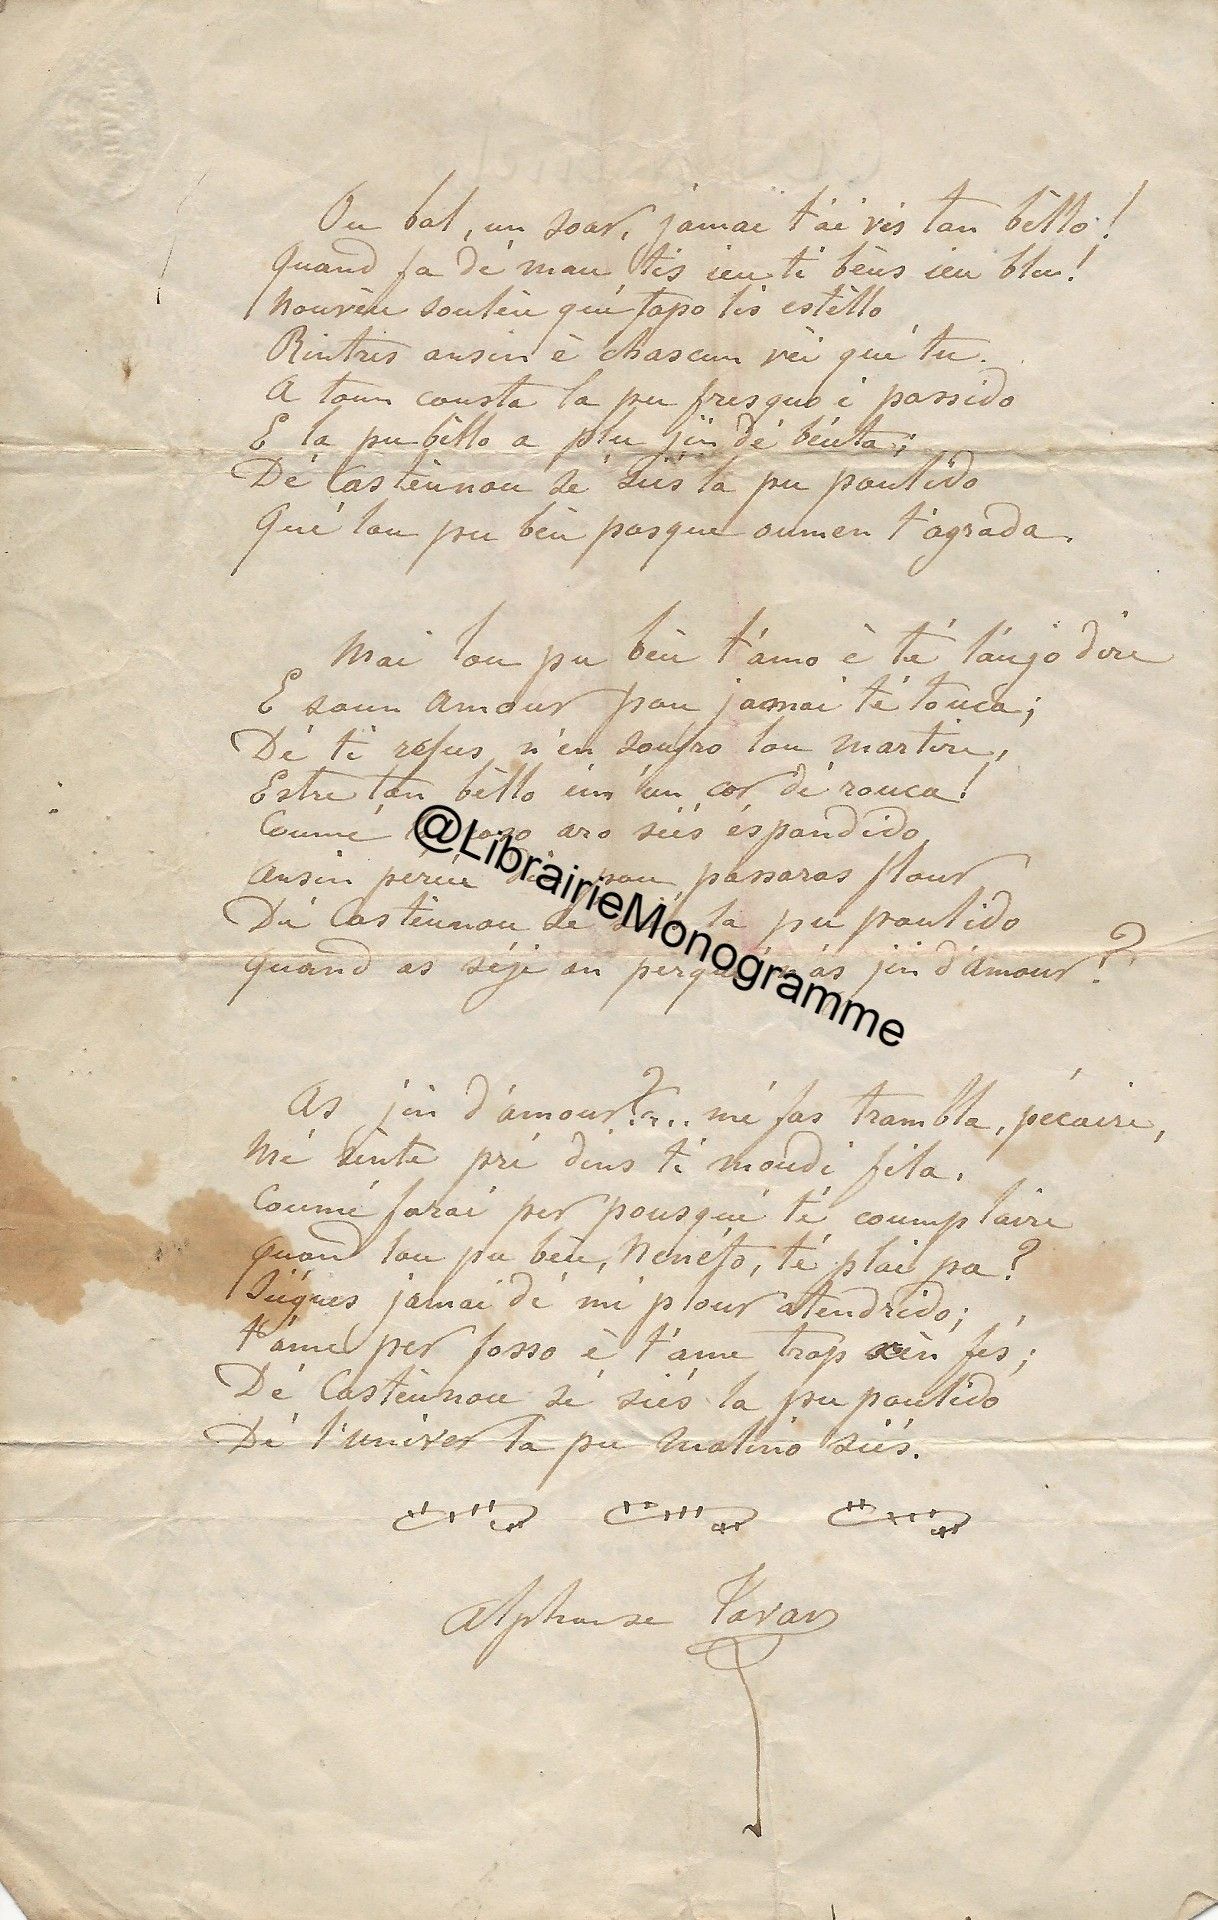 Ou bal, un soar, jamai t'ai vis tan bèllo!
Quand fa dé mau tis ieu ti bèus ieu blu!
Nouvèu soulèu qué tapo lis estèllo
Rintres ansin è chascun vèi qué tu.
A toun cousta la pu fresquo è passido
E la pu bèllo a plu jin dé bèuta;
Dé Castèunou sé siès la pu poulido
Qué lou pu bèu pasque oumen t'agrada.
Mai lou pu bèu t'amo è té l'aujo dire
E soun amour pou jamai té touca;
Dé ti refus n'en soufro lou martire,
Estre tan bèllo em'un cor dé rouca!
Coumé roso aro siès éspandido,
Ansin péréu pou passaras flour
Dé Castèunou sé siès la pu poulido
Quand as séje an perqué n'as jin d'amour?
As jin d'amour?... mé fas trambla, pécaire,
Mé sente pré dins ti moudi fila.
Coumé farai per pousqué té coumplaire
Quand lou pu bèu, Nenéto, té plai pa?
Siégues jamai dé mi plour atendrido;
t'ame per forso è t'ame trop sèn fés;
Dé Castèunou sé siès la pu poulido
Dé l'univer la pu malino siés.
Alphonse Tavan
@LibrairieMonogramme